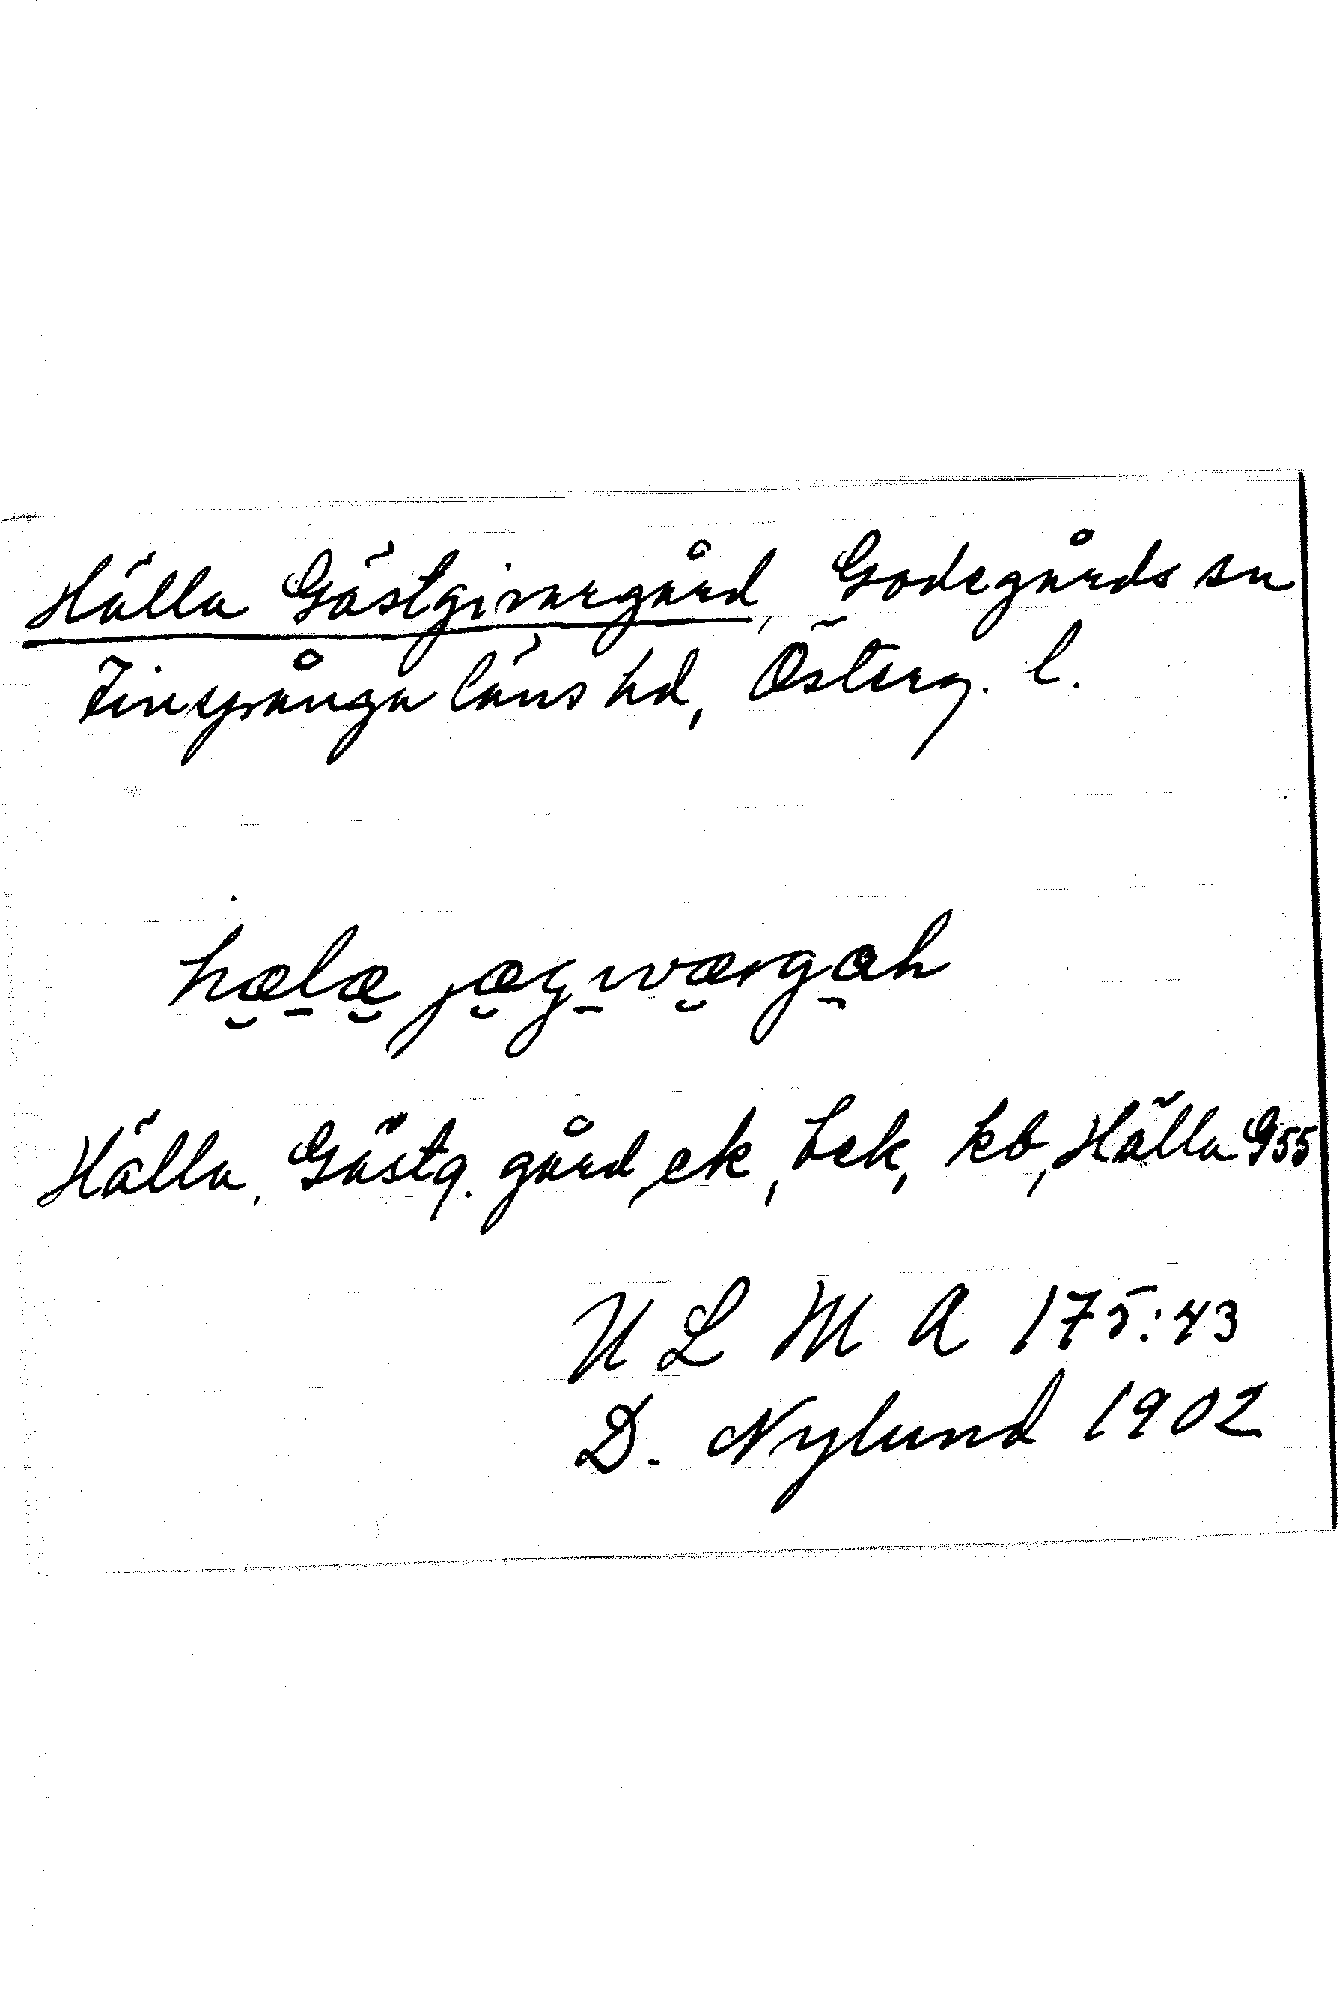 Hälla Gästgivargård, Godegårds sn
Finspånga läns hd, Österg. l.
hælæ jæʒ̱værgah
Hälla, Gästg. gård, ek, bek, kb, Hälla G55
U L M A 175:43
D. Nylund 1902